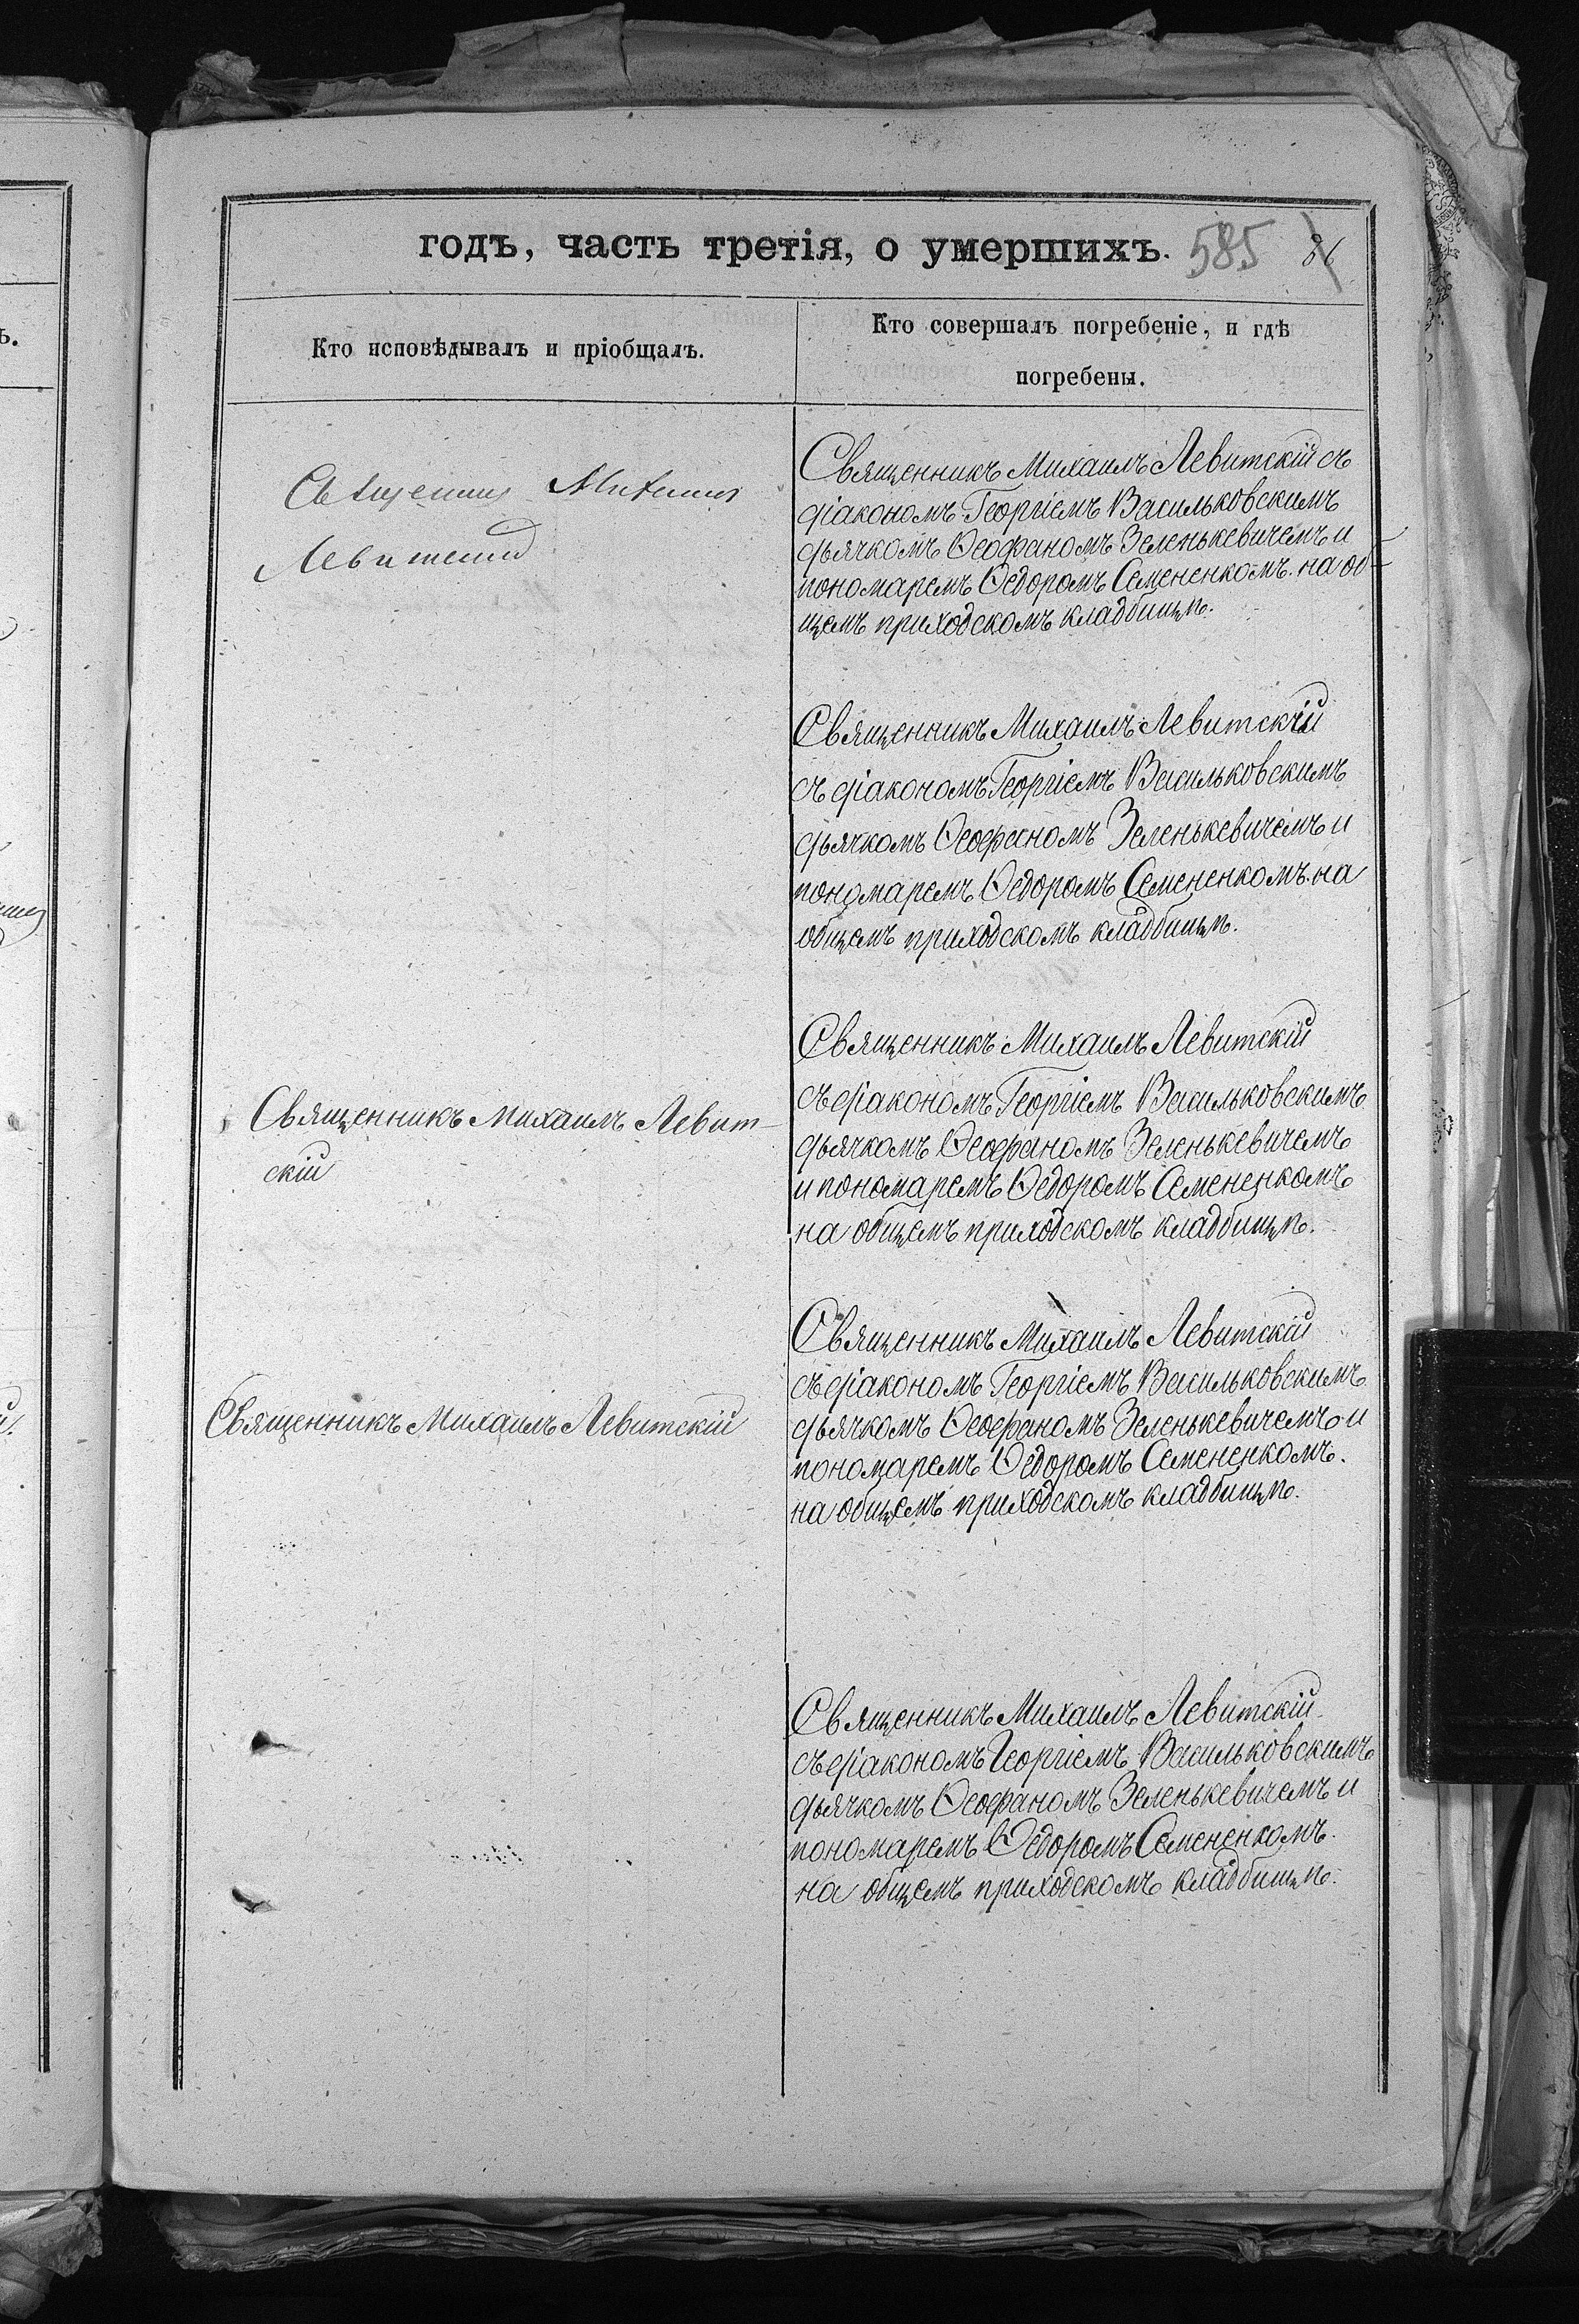 годъ, часть третія, о умершихъ. 585 86
Кто исповѣдывалъ и пріобщалъ.
Кто совершалъ погребеніе, и гдѣ
погребены.
Священникъ Михаилъ
Левитскій
Священникъ Михаилъ Левитскій съ
діакономъ Георгіемъ Васильковскимъ
дьячкомъ Ѳеофаномъ Зеленькевичемъ и
пономаремъ Ѳедоромъ Семененкомъ на об-
щемъ приходскомъ кладбищѣ.
Священникъ Михаилъ Левитскій
съ діакономъ Георгіемъ Васильковскимъ
дьячкомъ Ѳеофаномъ Зеленькевичемъ и
пономаремъ Ѳедоромъ Семененкомъ на
общемъ приходскомъ кладбищѣ.
Священникъ Михаилъ Левит-
скій
Священникъ Михаилъ Левитскій
съ діакономъ Георгіемъ Васильковскимъ
дьячкомъ Ѳеофаномъ Зеленькевичемъ
и пономаремъ Ѳедоромъ Семененкомъ
на общемъ приходскомъ кладбищѣ.
Священникъ Михаилъ Левитскій
Священникъ Михаилъ Левитскій
съ діакономъ Георгіемъ Васильковскимъ
дьячкомъ Ѳеофаномъ Зеленькевичемъ и
пономаремъ Ѳедоромъ Семененкомъ.
на общемъ приходскомъ кладбищѣ.
Священникъ Михаилъ Левитскій
съ діакономъ Георгіемъ Васильковскимъ
дьячкомъ Ѳеофаномъ Зеленькевичемъ и
пономаремъ Ѳедоромъ Семененкомъ
на общемъ приходскомъ кладбищѣ.